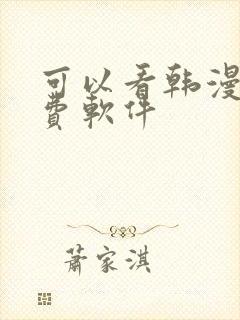 可以看韩漫
費軟件
蕭家淇